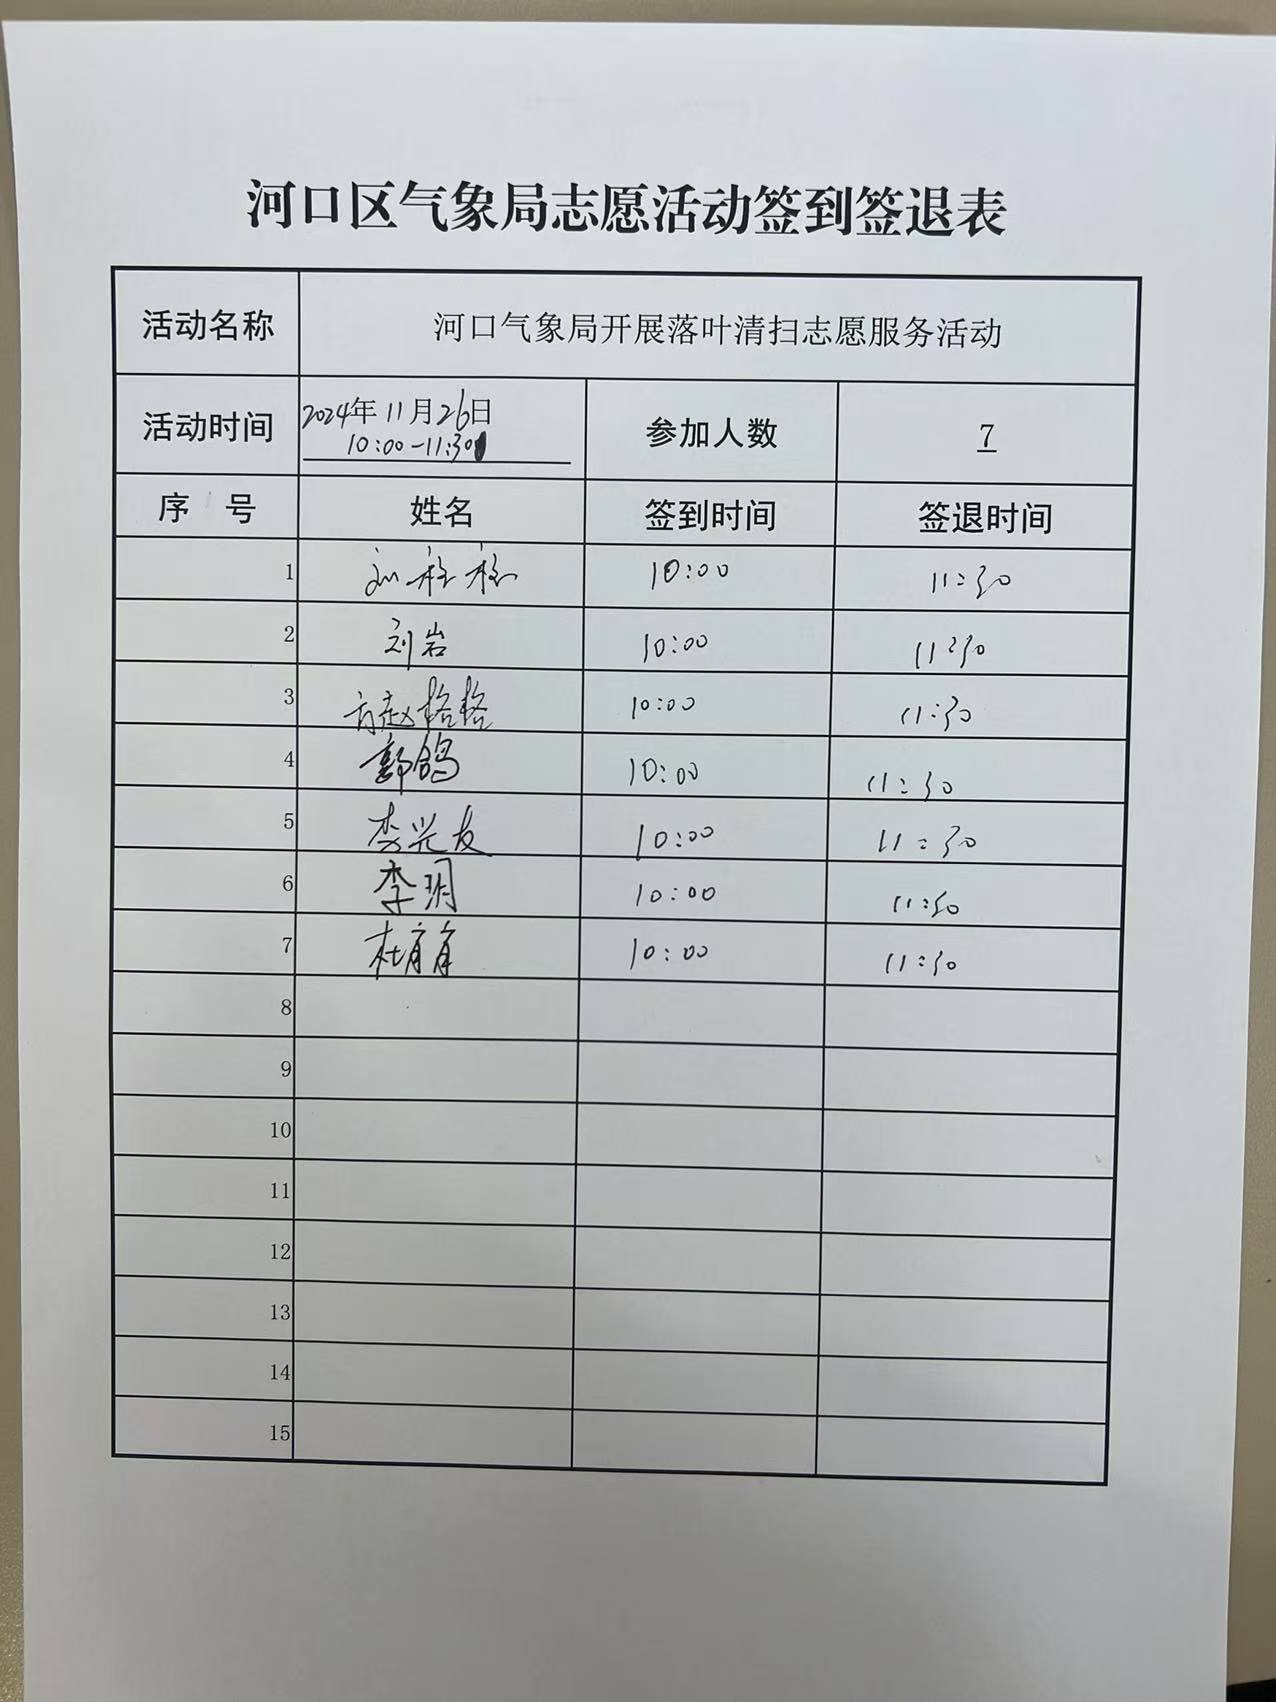 河口区气象局志愿活动签到签退表
活动名称 河口气象局开展落叶清扫志愿服务活动
活动时间 2024年11月26日 10:00-11:30 参加人数 7
序 号 姓名 签到时间 签退时间
1 刘 10:00 11:30
2 刘岩 10:00 11:30
3 格格 10:00 11:30
4 郭鸽 10:00 11:30
5 李兴友 10:00 11:30
6 李玥 10:00 11:30
7 杜 10:00 11:30
8
9
10
11
12
13
14
15